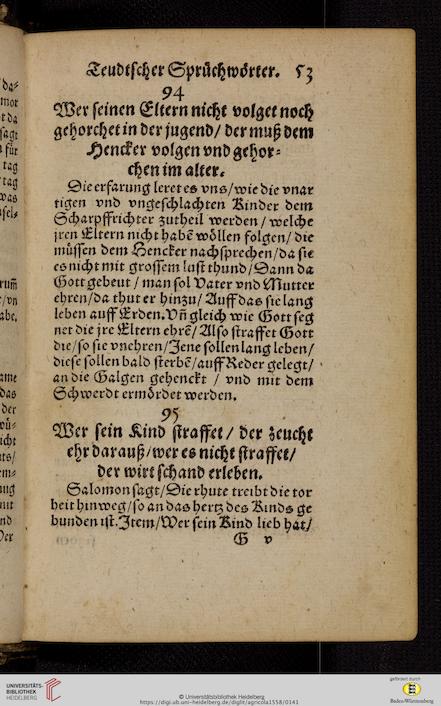 Teudtscher Sprüchwörter. 53
94
Wer seinen Eltern nicht volget noch
gehorchet in der jugend/ der muß dem
Hencker volgen vnd gehor-
chen im alter.
Die erfarung leret es vns/ wie die vnar
tigen vnd vngeschlachten Kinder dem
Scharpffrichter zutheil werden/ welche
jren Eltern nicht habē wöllen folgen/ die
müssen dem Hencker nachsprechen/ da sie
es nicht mit grossem lust thund/ Dann da
Gott gebeut/ man sol Vater vnd Mutter
ehren/ da thut er hinzu/ Auff das sie lang
leben auff Erden. Vñ gleich wie Gott seg
net die jre Eltern ehrē/ Also straffet Gott
die/ so sie vnehren/ Jene sollen lang leben/
diese sollen bald sterbē/ auff Reder gelegt/
an die Galgen gehenckt/ vnd mit dem
Schwerdt ermördet werden.
95
Wer sein Kind straffet/ der zeucht
ehr darauß/ wer es nicht straffet/
der wirt schand erleben.
Salomon sagt/ Die rhute treibt die tor
heit hinweg/ so an das hertz des Kinds ge
bunden ist. Item/ Wer sein Kind lieb hat/
G v
UNIVERSITÄTS-
BIBLIOTHEK
HEIDELBERG
© Universitätsbibliothek Heidelberg
https://digi.ub.uni-heidelberg.de/diglit/agricola1558/0141
gefördert durch
Baden-Württemberg